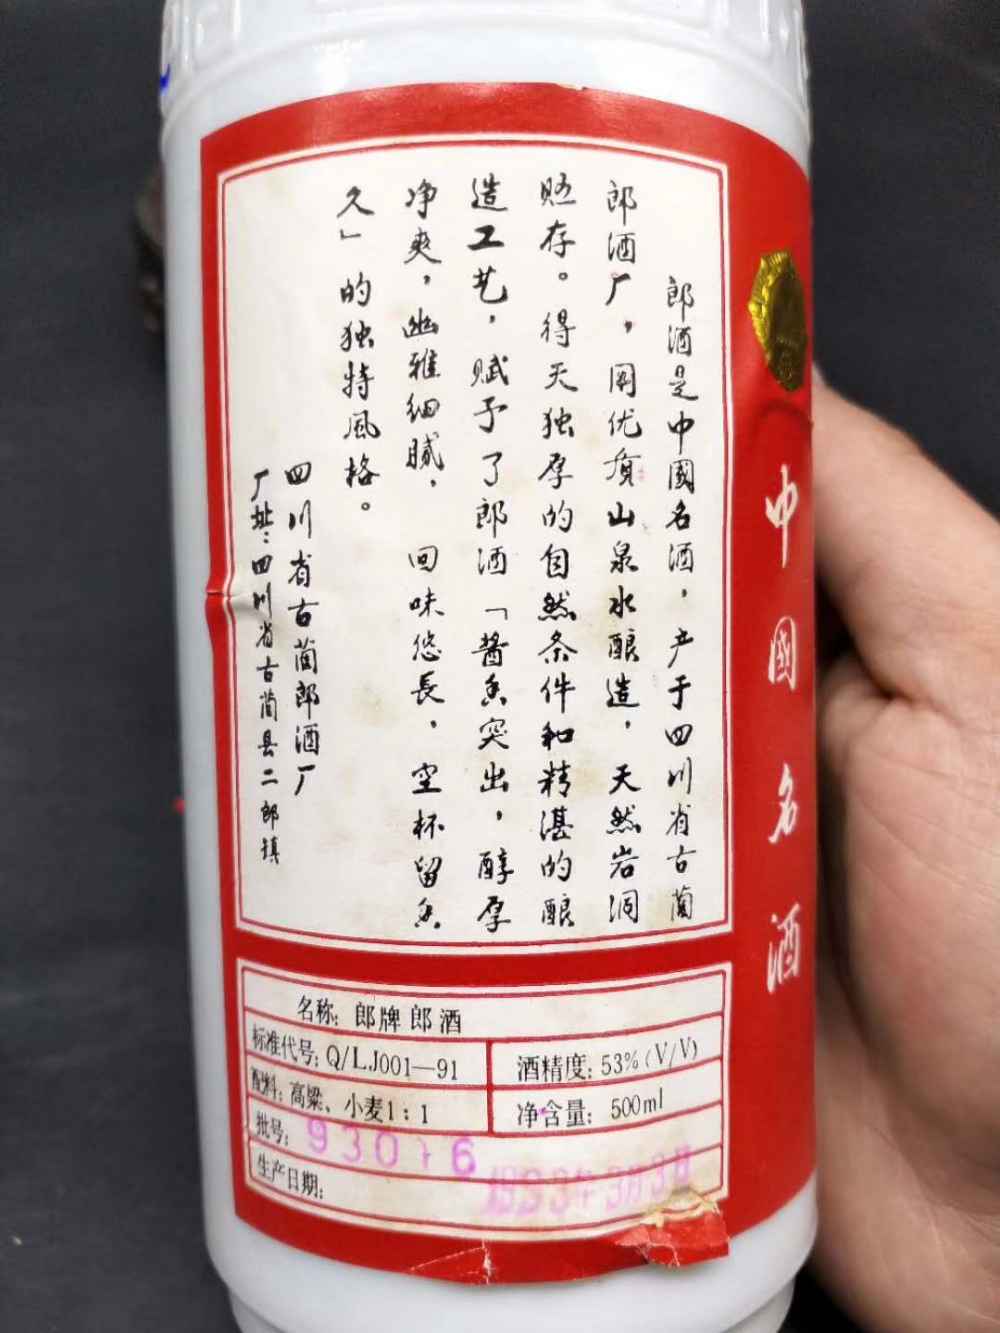 郎酒是中國名酒，产于四川省古藺
郎酒厂，用优质山泉水酿造，天然岩洞
贮存。得天独厚的自然条件和精湛的酿
造工艺，赋予了郎酒「醬香突出，醇厚
净爽，幽雅细腻，回味悠長，空杯留香
久」的独特風格。
四川省古藺郎酒厂
厂址：四川省古藺县二郎镇
中國名酒
名称：郎牌郎酒
标准代号：Q/LJ001—91
酒精度：53%(V/V)
配料：高粱、小麦1：1
净含量：500ml
批号：93016
生产日期：1993年3月3日